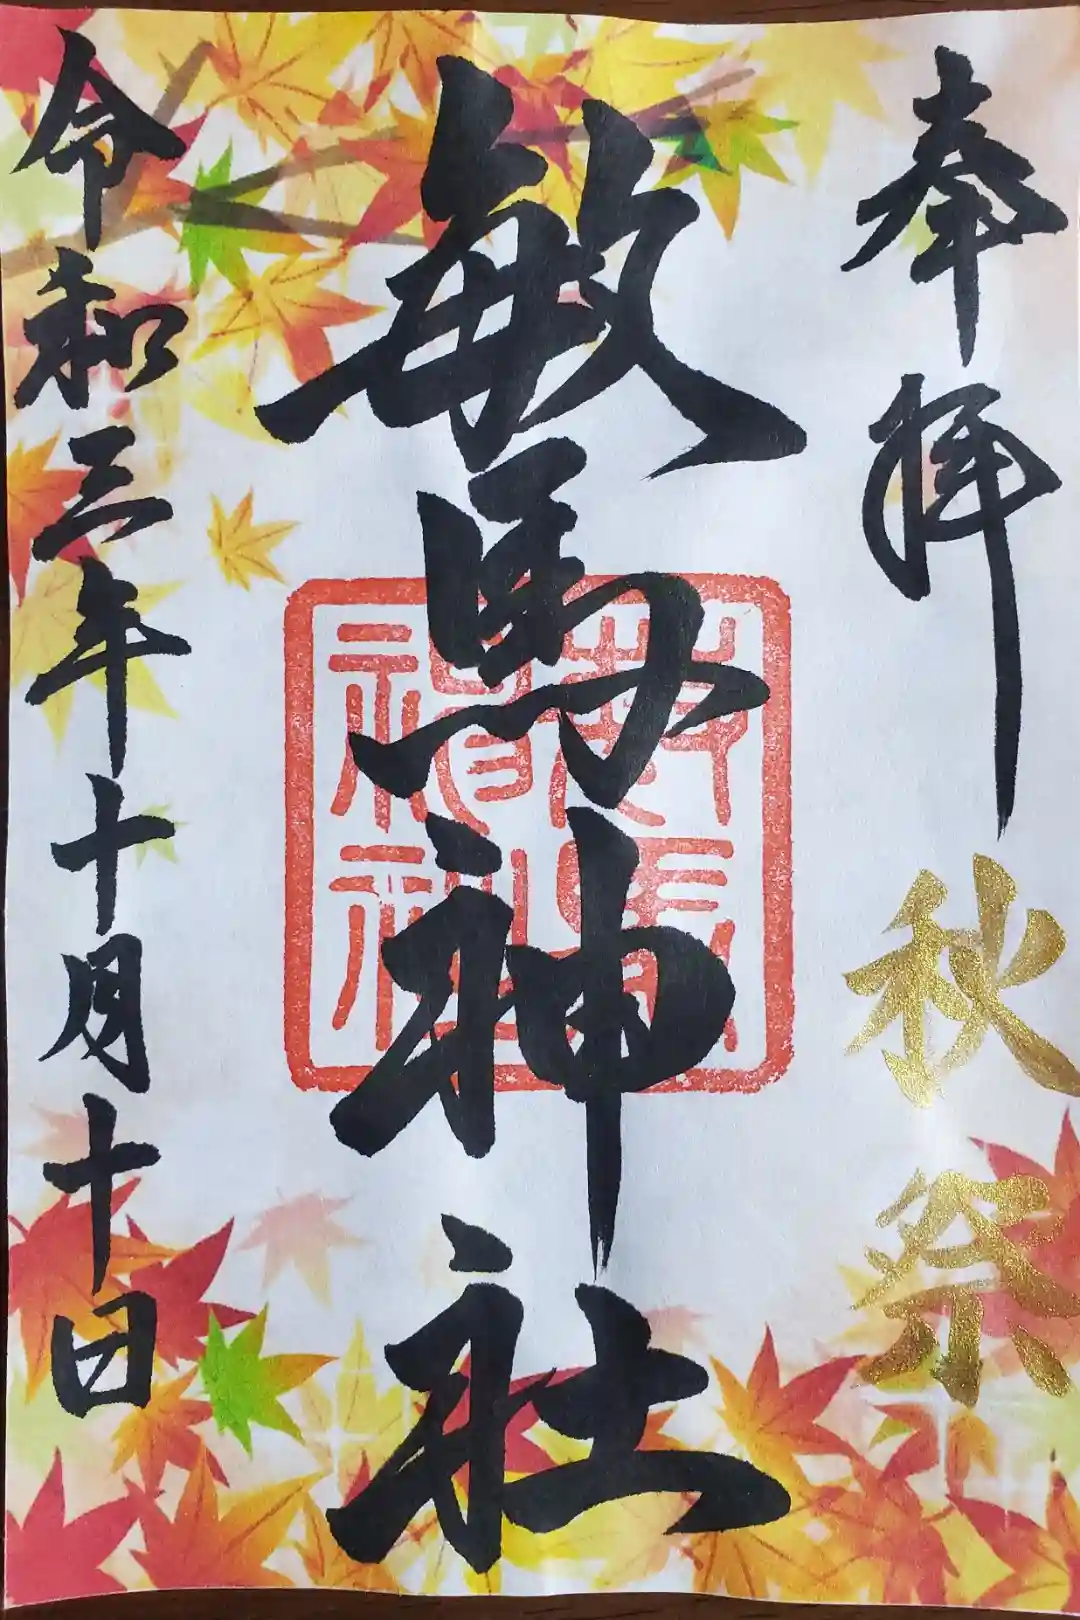 奉拝 秋祭
敏馬神社
敏馬
神社
令和三年十月十日